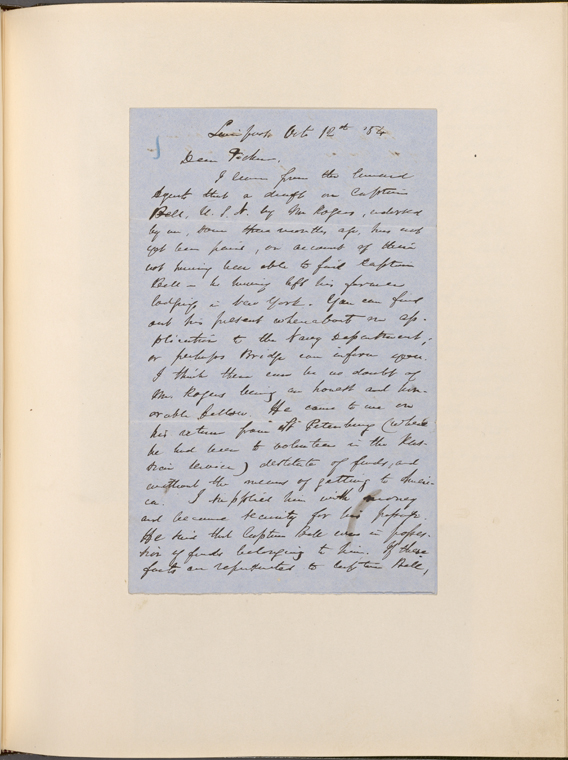 Liverpool Oct. 12th '54
Dear Ticknor,
I learn from the Cunard
Agents that a draft on Captain
Bell, U. S. N. by Mr Rogers, indorsed
by me, some three months ago, has not
yet been paid, on account of their
not having been able to find Captain
Bell — he having left his former
lodgings in New York. You can find
out his present whereabout on ap-
plication to the Navy Department;
or perhaps Bridge can inform you.
I think there can be no doubt of
Mr. Rogers being an honest and hon-
orable fellow. He came to me on
his return from St Petersburg (where
he had been to volunteer in the Rus-
sian service) destitute of funds, and
without the means of getting to Ameri-
ca. I supplied him with money
and became security for his passage.
He said that Captain Bell was in posses-
sion of funds belonging to him. If these
facts are represented to Captain Bell,